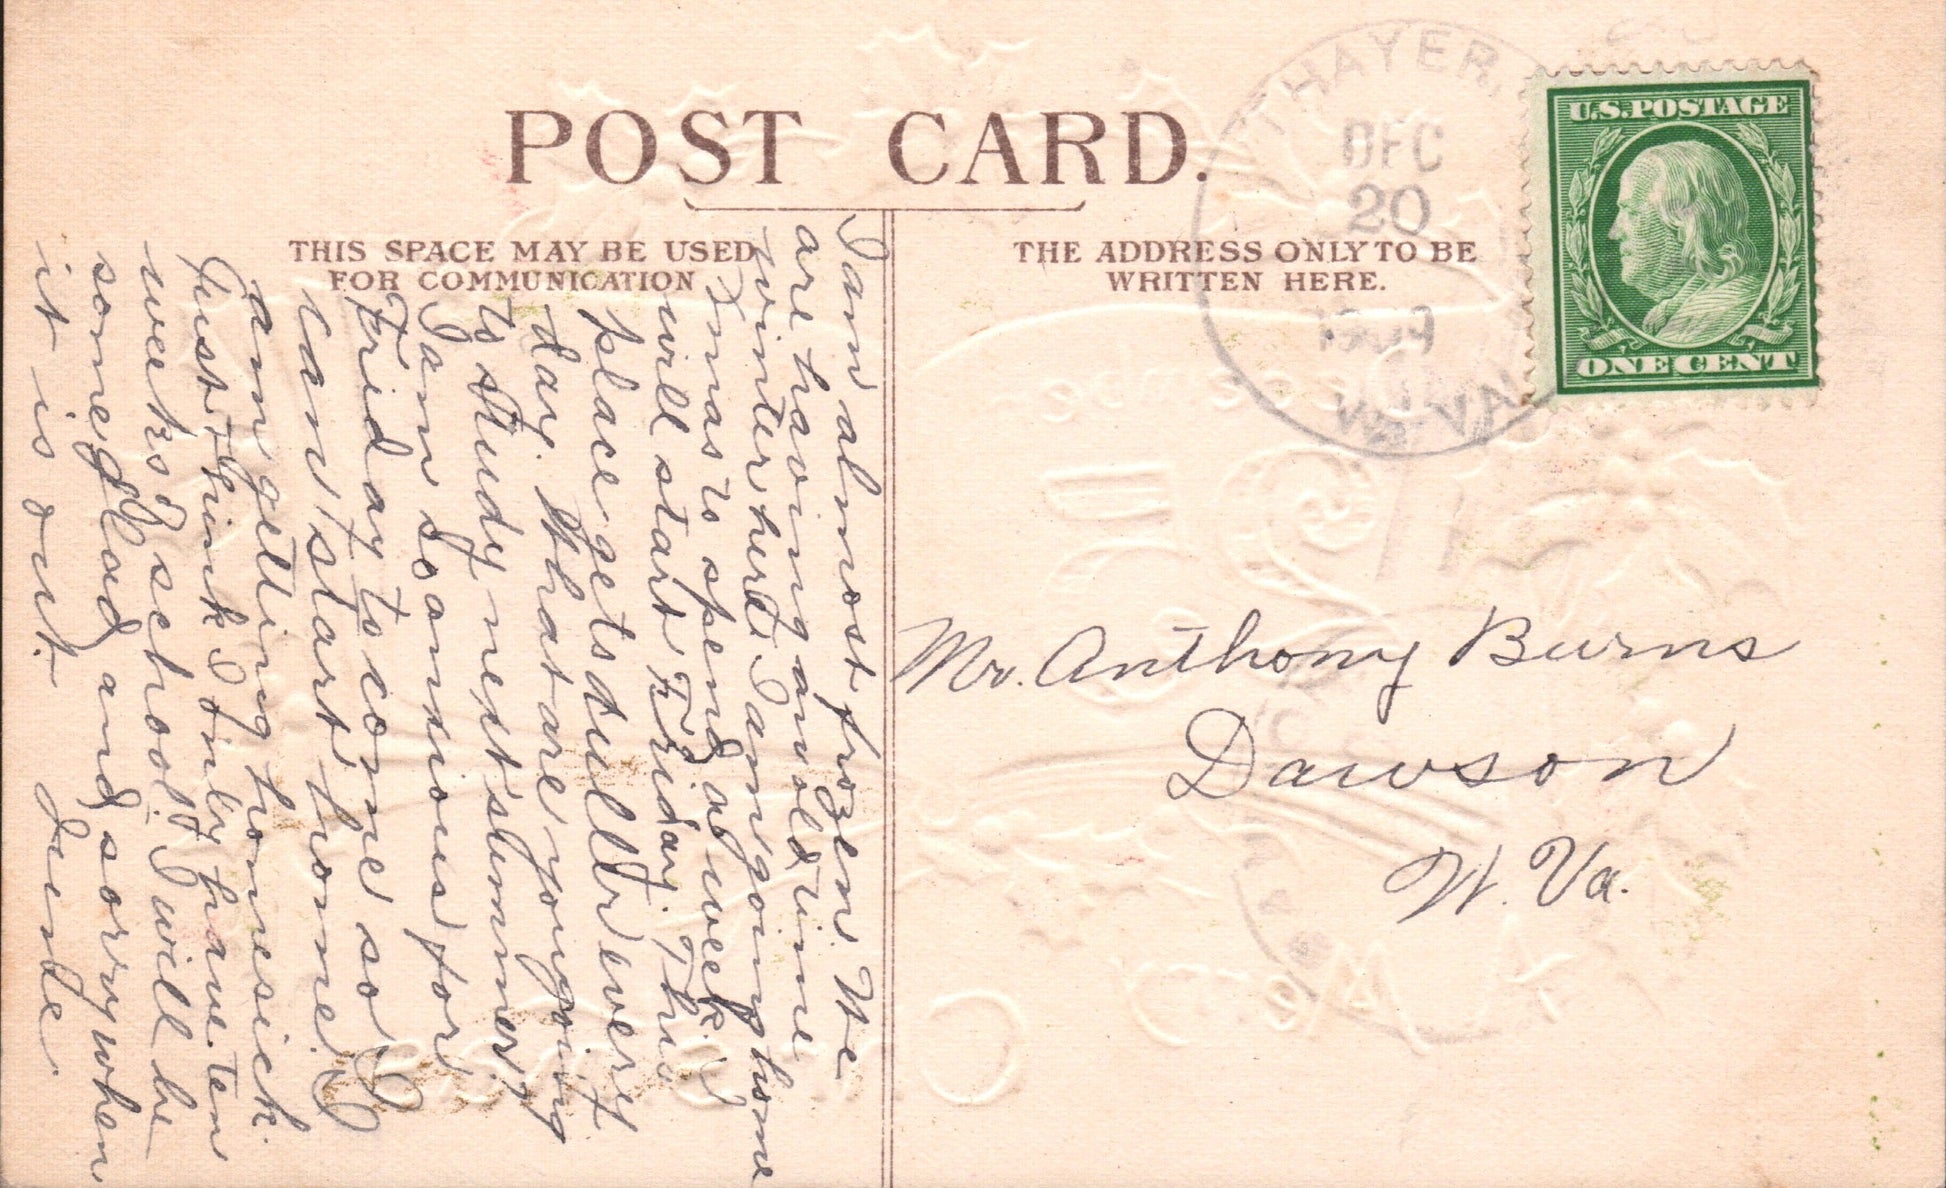 POST CARD.
THIS SPACE MAY BE USED
FOR COMMUNICATION
THE ADDRESS ONLY TO BE
WRITTEN HERE.
THAYER.
DEC
20
1909
W. VA
U.S. POSTAGE
ONE CENT
Mr. Anthony Burns
Dawson
W. Va.
I am almost frozen. We
are having an old time
winter here. I am going home
Xmas to spend a week I
will start Friday. This
place gets duller every
day. What are you going
to study next summer?
I am so anxious for
Friday to come so I
can start home. I
am getting homesick.
Just think I only have ten
weeks' school. I will be
some glad and sorry when
it is out. Jude.